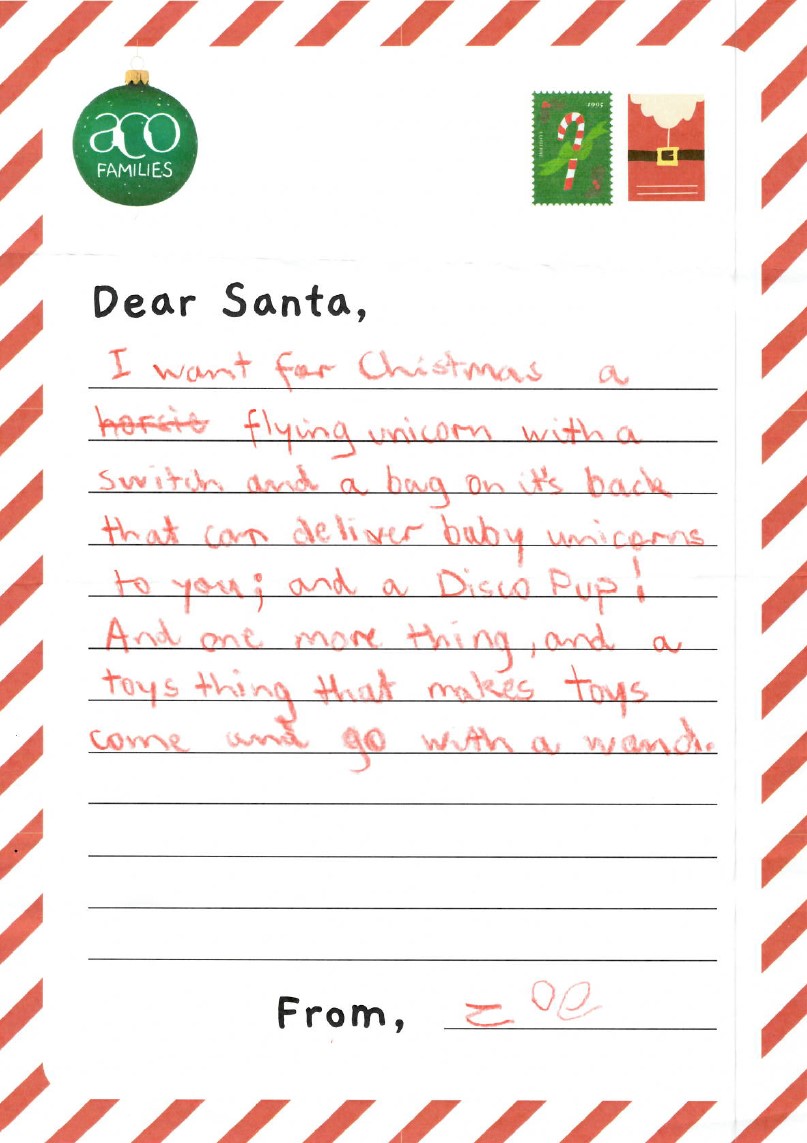 aco
FAMILIES
1995
Dear Santa,
I want for Chistmas a
horsie flying unicorn with a
switch and a bag on it's back
that can deliver baby unicorns
to you; and a Disco Pup!
And one more thing, and a
toys thing that makes toys
come and go with a wand.
From, zoe